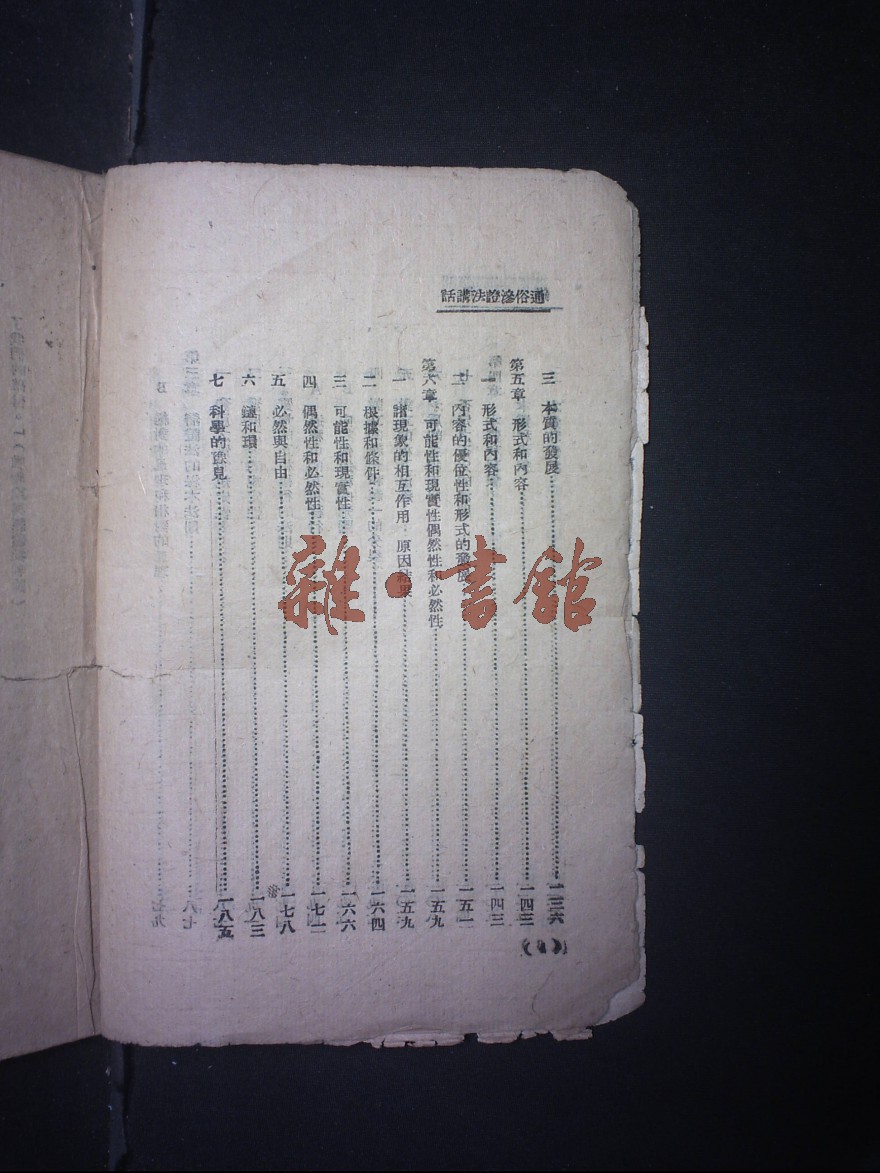 通俗滲證法講話
三 本質的發展 一三六
第五章 形式和內容 一四三
一 形式和內容 一四三
二 內容的優位性和形式的發展 一五一
第六章 可能性和現實性偶然性和必然性 一五九
一 諸現象的相互作用 原因結果 一五九
二 根據和條件 一六四
三 可能性和現實性 一六六
四 偶然性和必然性 一七一
五 必然與自由 一七八
六 鏈和環 一八三
七 科學的豫見 一八五
雜·書館